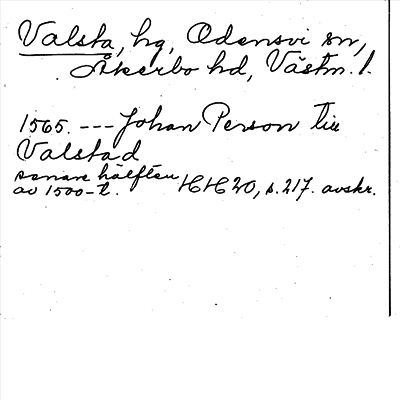 Valsta, hg, Odensvi sn,
Åkerbo hd, Västm. l.
1565. --- Johan Person till
Valstad
senare hälften
av 1500-t. HH20, s. 217. avskr.